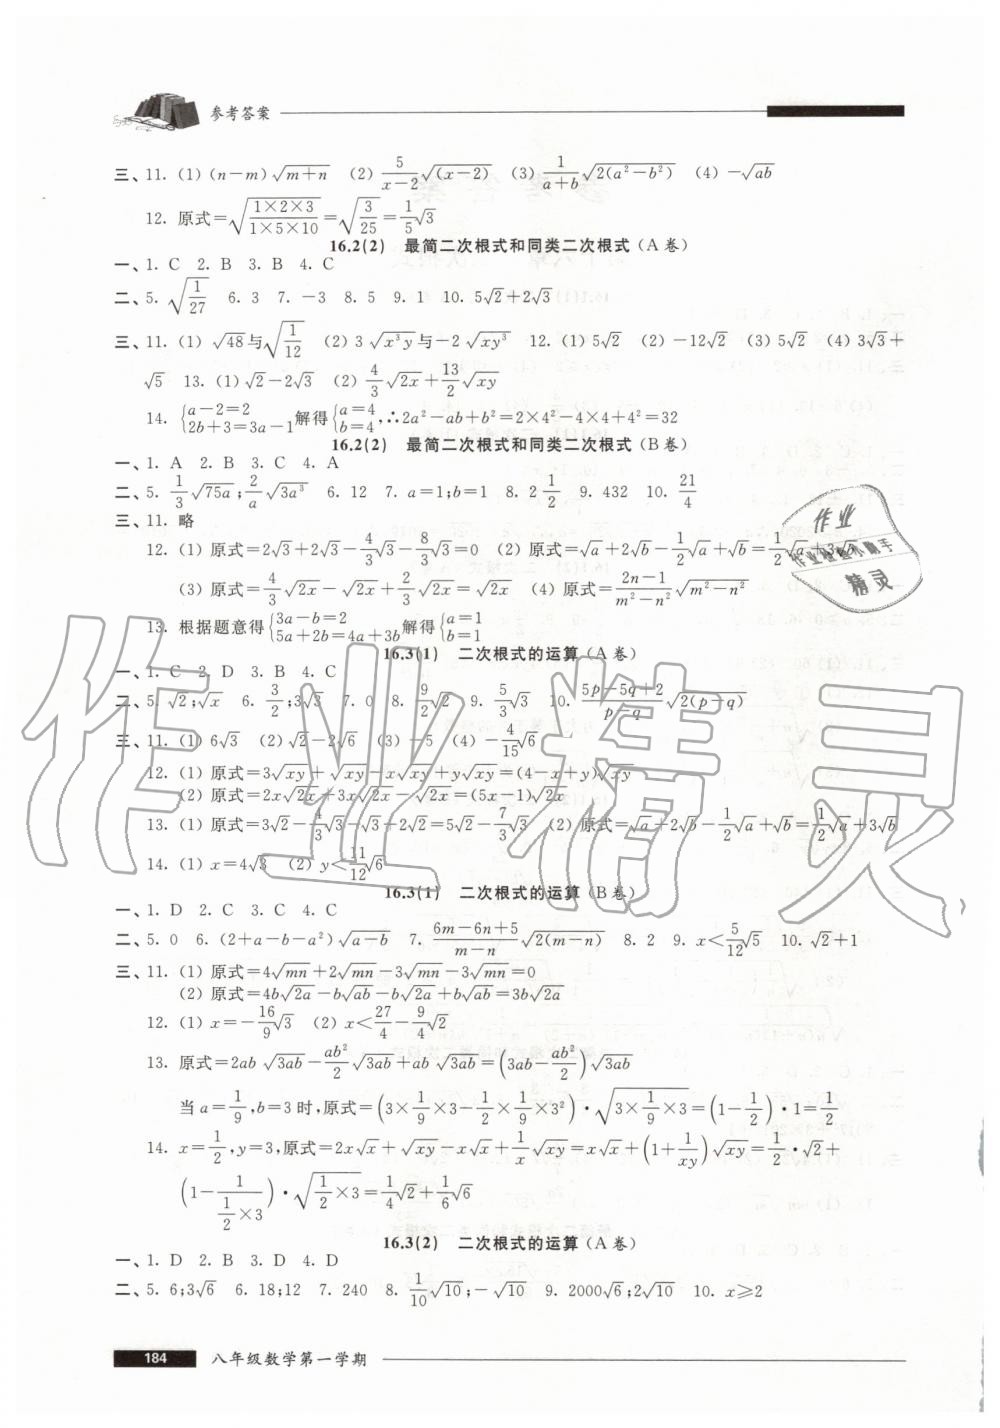 参考答案
三、11. (1) (n-m)√(m+n) (2) 5/(x-2) √(x-2) (3) 1/(a+b) √(2(a²-b²)) (4) -√(ab)
12. 原式=√((1×2×3)/(1×5×10))=√(3/25)=1/5 √3
16.2(2) 最简二次根式和同类二次根式(A卷)
一、1. C 2. B 3. B 4. C
二、5. √(1/27) 6. 3 7. -3 8. 5 9. 1 10. 5√2+2√3
三、11. (1) √48与√(1/12) (2) 3√(x³y)与-2√(xy³) 12. (1) 5√2 (2) -12√2 (3) 5√2 (4) 3√3+
√5 13. (1) √2-2√3 (2) 4/3 √(2x)+13/2 √(xy)
14. {a-2=2 2b+3=3a-1 解得{a=4, b=4, ∴2a²-ab+b²=2×4²-4×4+4²=32
16.2(2) 最简二次根式和同类二次根式(B卷)
一、1. A 2. B 3. C 4. A
二、5. 1/3 √(75a); 2/a √(3a³) 6. 12 7. a=1;b=1 8. 2 1/2 9. 432 10. 21/4
三、11. 略
12. (1) 原式=2√3+2√3-4/3 √3-8/3 √3=0 (2) 原式=√a+2√b-1/2 √a+√b=1/2 √a+3√b
(3) 原式=4/3 √(2x)-√(2x)+2/3 √(2x)=√(2x) (4) 原式=(2n-1)/(m²-n²) √(m²-n²)
13. 根据题意得{3a-b=2 5a+2b=4a+3b 解得{a=1 b=1
16.3(1) 二次根式的运算(A卷)
一、1. C 2. D 3. B 4. C
二、5. √2;√x 6. 3/2;3√3 7. 0 8. 9/2 √2 9. 5/3 √3 10. (5p-5q+2)/(p-q) √(2(p-q))
三、11. (1) 6√3 (2) √2-2√6 (3) -5 (4) -4/15 √6
12. (1) 原式=3√(xy)+√(xy)-x√(xy)+y√(xy)=(4-x+y)√(xy)
(2) 原式=2x√(2x)+3x√(2x)-√(2x)=(5x-1)√(2x)
13. (1) 原式=3√2-4/3 √3-√3+2√2=5√2-7/3 √3 (2) 原式=√a+2√b-1/2 √a+√b=1/2 √a+3√b
14. (1) x=4√3 (2) y<11/12 √6
16.3(1) 二次根式的运算(B卷)
一、1. D 2. C 3. C 4. C
二、5. 0 6. (2+a-b-a²)√(a-b) 7. (6m-6n+5)/(m-n) √(2(m-n)) 8. 2 9. x<5/12 √5 10. √2+1
三、11. (1) 原式=4√(mn)+2√(mn)-3√(mn)-3√(mn)=0
(2) 原式=4b√(2a)-b√(ab)-b√(2a)+b√(ab)=3b√(2a)
12. (1) x=-16/9 √3 (2) x<27/4-9/4 √2
13. 原式=2ab√(3ab)-ab²/2 √(3ab)+ab√(3ab)=(3ab-ab²/2)√(3ab)
当a=1/9,b=3时,原式=(3×1/9×3-1/2×1/9×3²)·√(3×1/9×3)=(1-1/2)·1=1/2
14. x=1/2,y=3,原式=2x√x+√(xy)-x√x+1/x √(xy)=x√x+(1+1/(xy))√(xy)=1/2·√2+
(1-1/(1/2×3))·√(1/2×3)=1/4 √2+1/6 √6
16.3(2) 二次根式的运算(A卷)
一、1. D 2. B 3. D 4. D
二、5. 6;3√6 6. 18;12 7. 240 8. 1/10 √10;-√10 9. 2000√6;2√10 10. x⩾2
184 八年级数学第一学期
作业精灵
作业
精灵